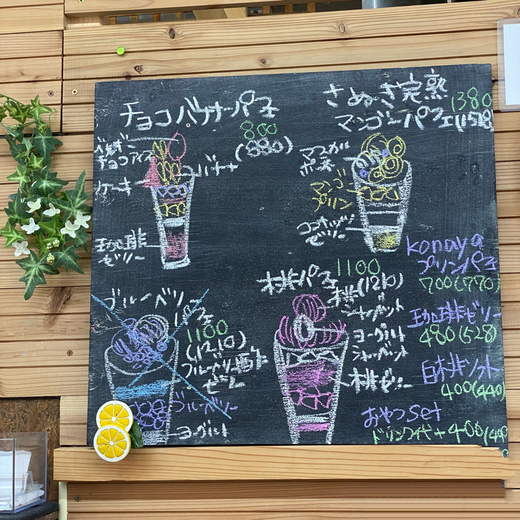 チョコバナナパフェ
800
(880)
チョコアイス
バナナ
ケーキ
珈琲
ゼリー
さぬき完熟
マンゴーパフェ
1380
(1528
マンゴ
プリン
ココナッツ
ゼリー
ブルーベリー
パフェ
1100
(1210)
ブルーベリー
ゼリー
ブルーベリー
ヨーグルト
桃パフェ
1100
(1210)
桃
シャーベット
ヨーグルト
シャーベット
桃ゼリー
konaya
プリンパフェ
700(770)
珈琲ゼリー
480(528)
白桃ソフト
400(440)
おやつset
ドリンク代+400(440